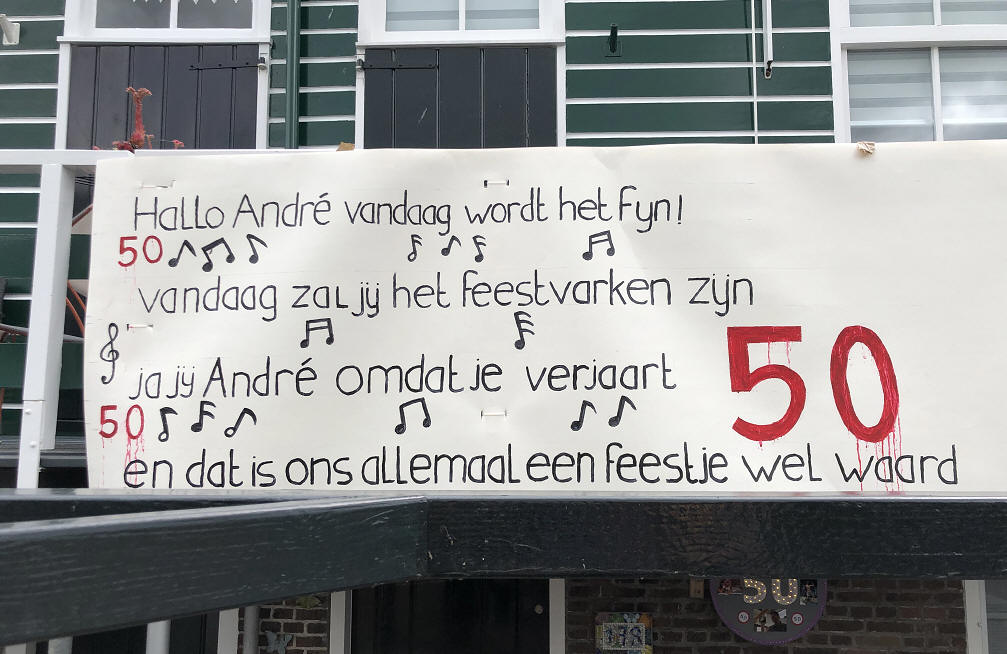 Hallo André vandaag wordt het fyn!
50
vandaag zal jij het feestvarken zijn
50
ja jij André omdat je verjaart
50
en dat is ons allemaal een feestje wel waard
50